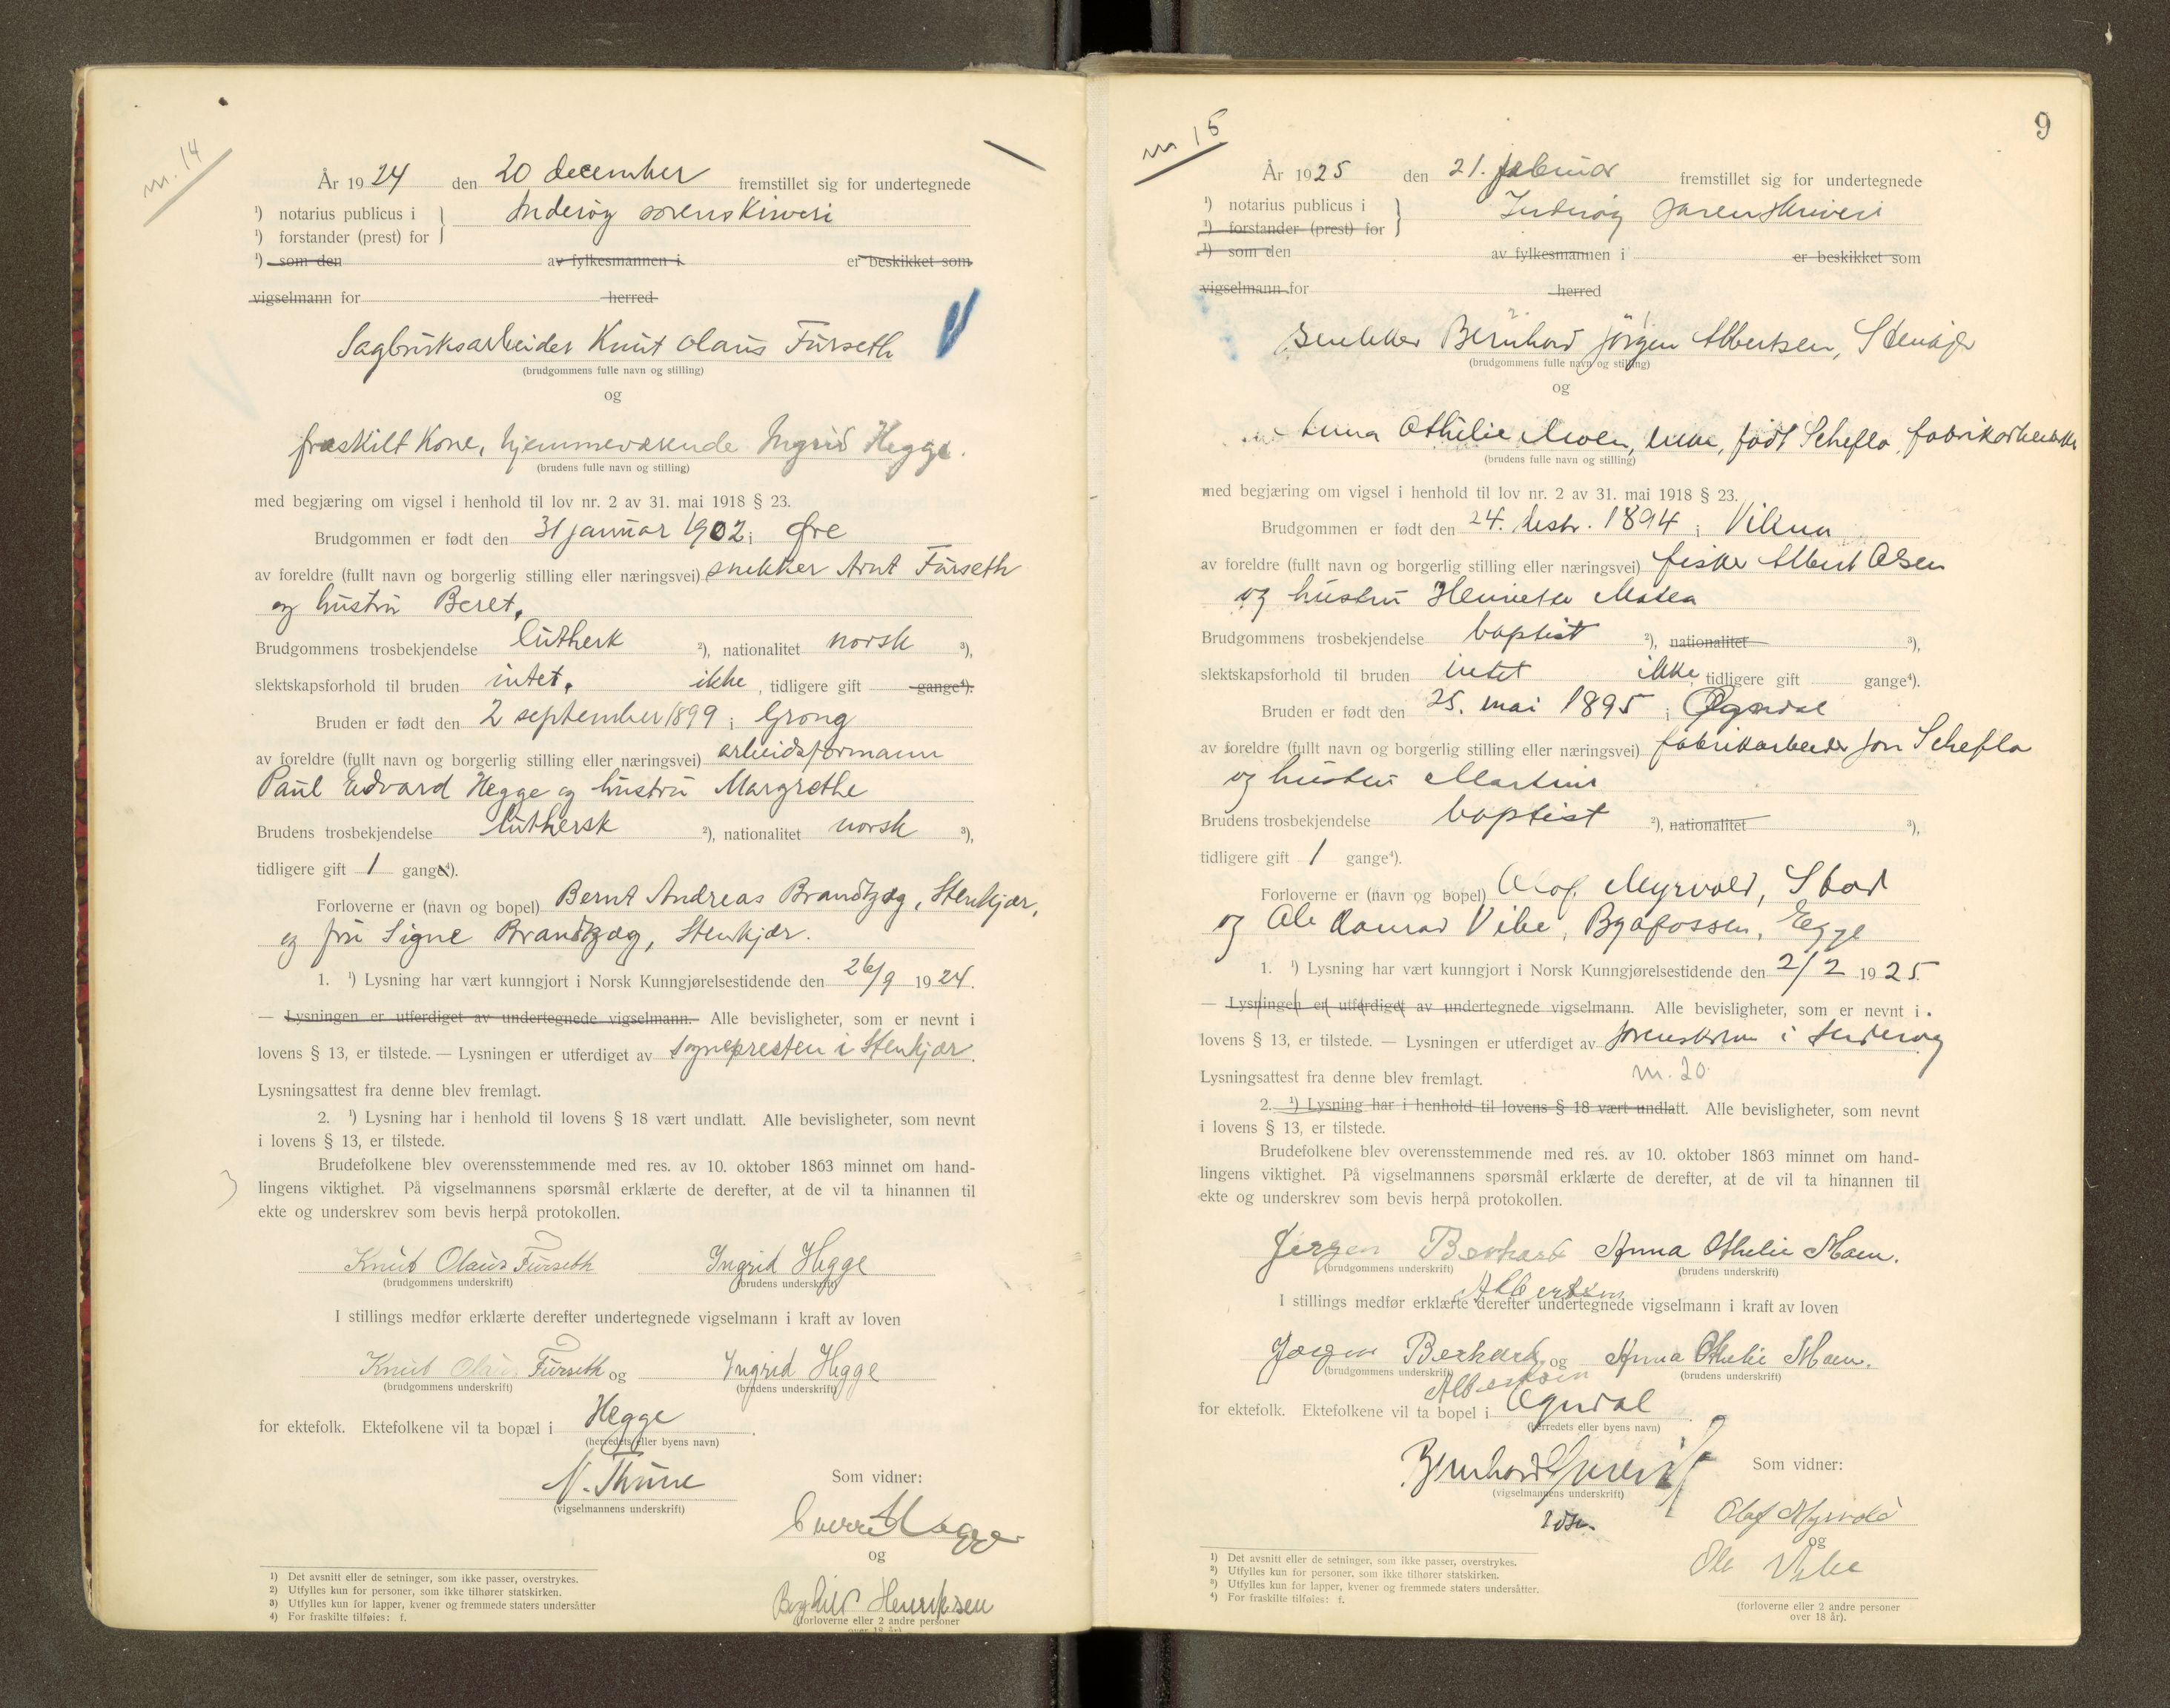 nr. 14
År 1924 den 20 december fremstillet sig for undertegnede
¹) notarius publicus i } Inderøy sorenskriveri
¹) forstander (prest) for
¹) som den av fylkesmannen i er beskikket som
vigselmann for herred
Sagbruksarbeider Knut Olaus Furseth
(brudgommens fulle navn og stilling)
og
fraskilt kone, hjemmeværende Ingrid Hegge.
(brudens fulle navn og stilling)
med begjæring om vigsel i henhold til lov nr. 2 av 31. mai 1918 § 23.
Brudgommen er født den 31 januar 1902 i Øre
av foreldre (fullt navn og borgerlig stilling eller næringsvei) snekker Arnt Furseth
og hustru Beret.
Brudgommens trosbekjendelse luthersk ²), nationalitet norsk ³),
slektskapsforhold til bruden intet. ikke, tidligere gift gange⁴).
Bruden er født den 2 september 1899 i Grong
av foreldre (fullt navn og borgerlig stilling eller næringsvei) arbeidsformann
Paul Edvard Hegge og hustru Margrethe
Brudens trosbekjendelse luthersk ²), nationalitet norsk ³),
tidligere gift 1 gange⁴).
Forloverne er (navn og bopel) Bernt Andreas Brandtzæg, Stenkjær,
og fru Signe Brandtzæg, Stenkjær.
1. ¹) Lysning har vært kunngjort i Norsk Kunngjørelsestidende den 26/9 1924.
— Lysningen er utferdiget av undertegnede vigselmann. Alle bevisligheter, som er nevnt i
lovens § 13, er tilstede. — Lysningen er utferdiget av sognepresten i Stenkjær.
Lysningsattest fra denne blev fremlagt.
2. ¹) Lysning har i henhold til lovens § 18 vært undlatt. Alle bevisligheter, som nevnt
i lovens § 13, er tilstede.
Brudefolkene blev overensstemmende med res. av 10. oktober 1863 minnet om hand-
lingens viktighet. På vigselmannens spørsmål erklærte de derefter, at de vil ta hinannen til
ekte og underskrev som bevis herpå protokollen.
Knut Olaus Furseth Ingrid Hegge
(brudgommens underskrift) (brudens underskrift)
I stillings medfør erklærte derefter undertegnede vigselmann i kraft av loven
Knut Olaus Furseth og Ingrid Hegge
(brudgommens underskrift) (brudens underskrift)
for ektefolk. Ektefolkene vil ta bopæl i Hegge.
(herredets eller byens navn)
N. Thune
(vigselmannens underskrift)
Som vidner:
Sverre Hegge
og
Borghild Henriksen
(forloverne eller 2 andre personer
over 18 år).
1) Det avsnitt eller de setninger, som ikke passer, overstrykes.
2) Utfylles kun for personer, som ikke tilhører statskirken.
3) Utfylles kun for lapper, kvener og fremmede staters undersåtter
4) For fraskilte tilføies: f.
9
nr 15
År 1925 den 21. februar fremstillet sig for undertegnede
¹) notarius publicus i } Inderøy sorenskriveri
¹) forstander (prest) for
¹) som den av fylkesmannen i er beskikket som
vigselmann for herred
snekker Bernhard Jørgen Albertsen, Stenkjær
(brudgommens fulle navn og stilling)
og
Anna Othilie Moen, enke, født Scheflo, fabrikarbeider
(brudens fulle navn og stilling)
med begjæring om vigsel i henhold til lov nr. 2 av 31. mai 1918 § 23.
Brudgommen er født den 24. 1894 i Vikna
av foreldre (fullt navn og borgerlig stilling eller næringsvei) fisker Albert Olsen
og hustru Henriette Matea
Brudgommens trosbekjendelse baptist ²), nationalitet ³),
slektskapsforhold til bruden intet ikke, tidligere gift gange⁴).
Bruden er født den 25. mai 1895 i Ogndal
av foreldre (fullt navn og borgerlig stilling eller næringsvei) fabrikarbeider Jon Scheflo
og hustru Martine
Brudens trosbekjendelse baptist ²), nationalitet ³),
tidligere gift 1 gange⁴).
Forloverne er (navn og bopel) Olof Myrvold, Stod
og Ole Konrad Vibe, Byafossen, Egge
1. ¹) Lysning har vært kunngjort i Norsk Kunngjørelsestidende den 2/2 1925.
— Lysningen er utferdiget av undertegnede vigselmann. Alle bevisligheter, som er nevnt i
lovens § 13, er tilstede. — Lysningen er utferdiget av sorenskriveren i Inderøy
Lysningsattest fra denne blev fremlagt. nr. 20
2. ¹) Lysning har i henhold til lovens § 18 vært undlatt. Alle bevisligheter, som nevnt
i lovens § 13, er tilstede.
Brudefolkene blev overensstemmende med res. av 10. oktober 1863 minnet om hand-
lingens viktighet. På vigselmannens spørsmål erklærte de derefter, at de vil ta hinannen til
ekte og underskrev som bevis herpå protokollen.
Jørgen Berhard Anna Othelie Moen.
(brudgommens underskrift) (brudens underskrift)
Albertsen
I stillings medfør erklærte derefter undertegnede vigselmann i kraft av loven
Jørgen Berhard og Anna Othelie Moen.
(brudgommens underskrift) (brudens underskrift)
Albertsen
for ektefolk. Ektefolkene vil ta bopel i Ogndal.
(herredets eller byens navn)
Bernhard
(vigselmannens underskrift)
Som vidner:
Olaf Myrvold
og
Ole Vibe
(forloverne eller 2 andre personer
over 18 år).
1) Det avsnitt eller de setninger, som ikke passer, overstrykes.
2) Utfylles kun for personer, som ikke tilhører statskirken.
3) Utfylles kun for lapper, kvener og fremmede staters undersåtter.
4) For fraskilte tilføies: f.